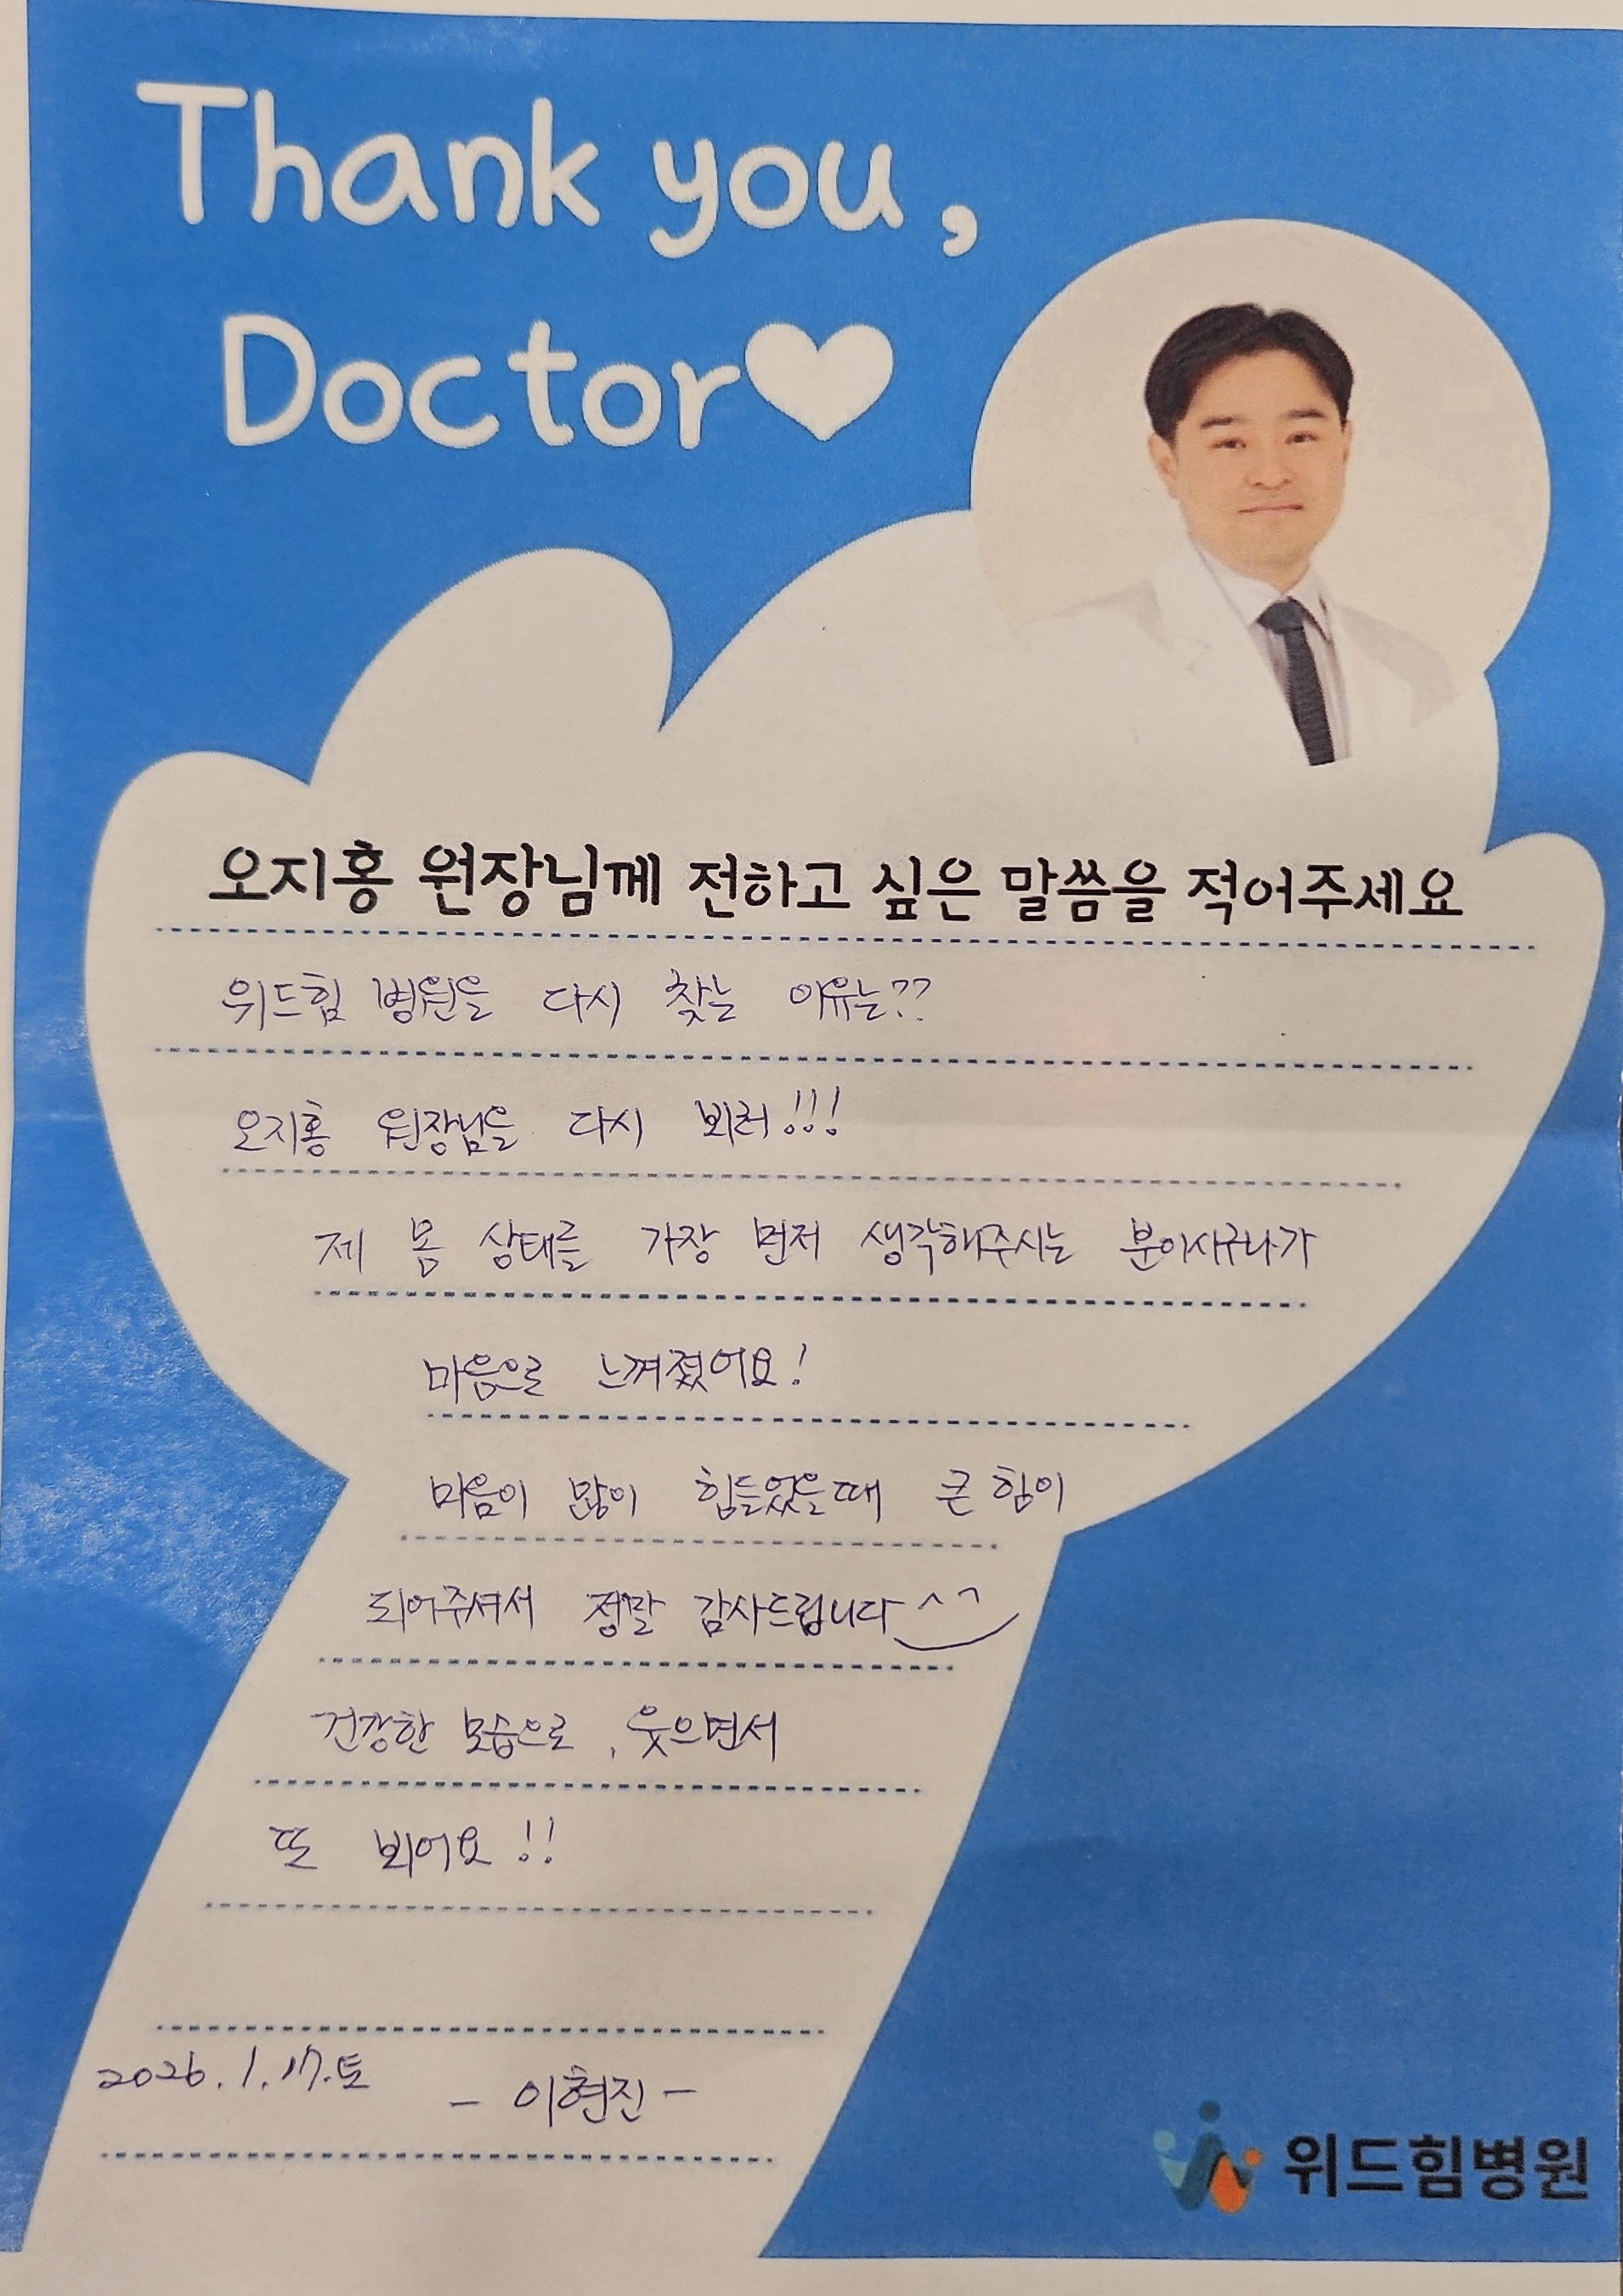 Thank you,
Doctor♥
오지홍 원장님께 전하고 싶은 말씀을 적어주세요
위드힘 병원을 다시 찾는 이유는??
오지홍 원장님을 다시 뵈러!!!
제 몸 상태를 가장 먼저 생각해주시는 분이시구나가
마음으로 느껴졌어요!
마음이 많이 힘들었을때 큰 힘이
되어주셔서 정말 감사드립니다^^
건강한 모습으로, 웃으면서
또 뵈어요!!
2026.1.17.토 - 이현진 -
위드힘병원